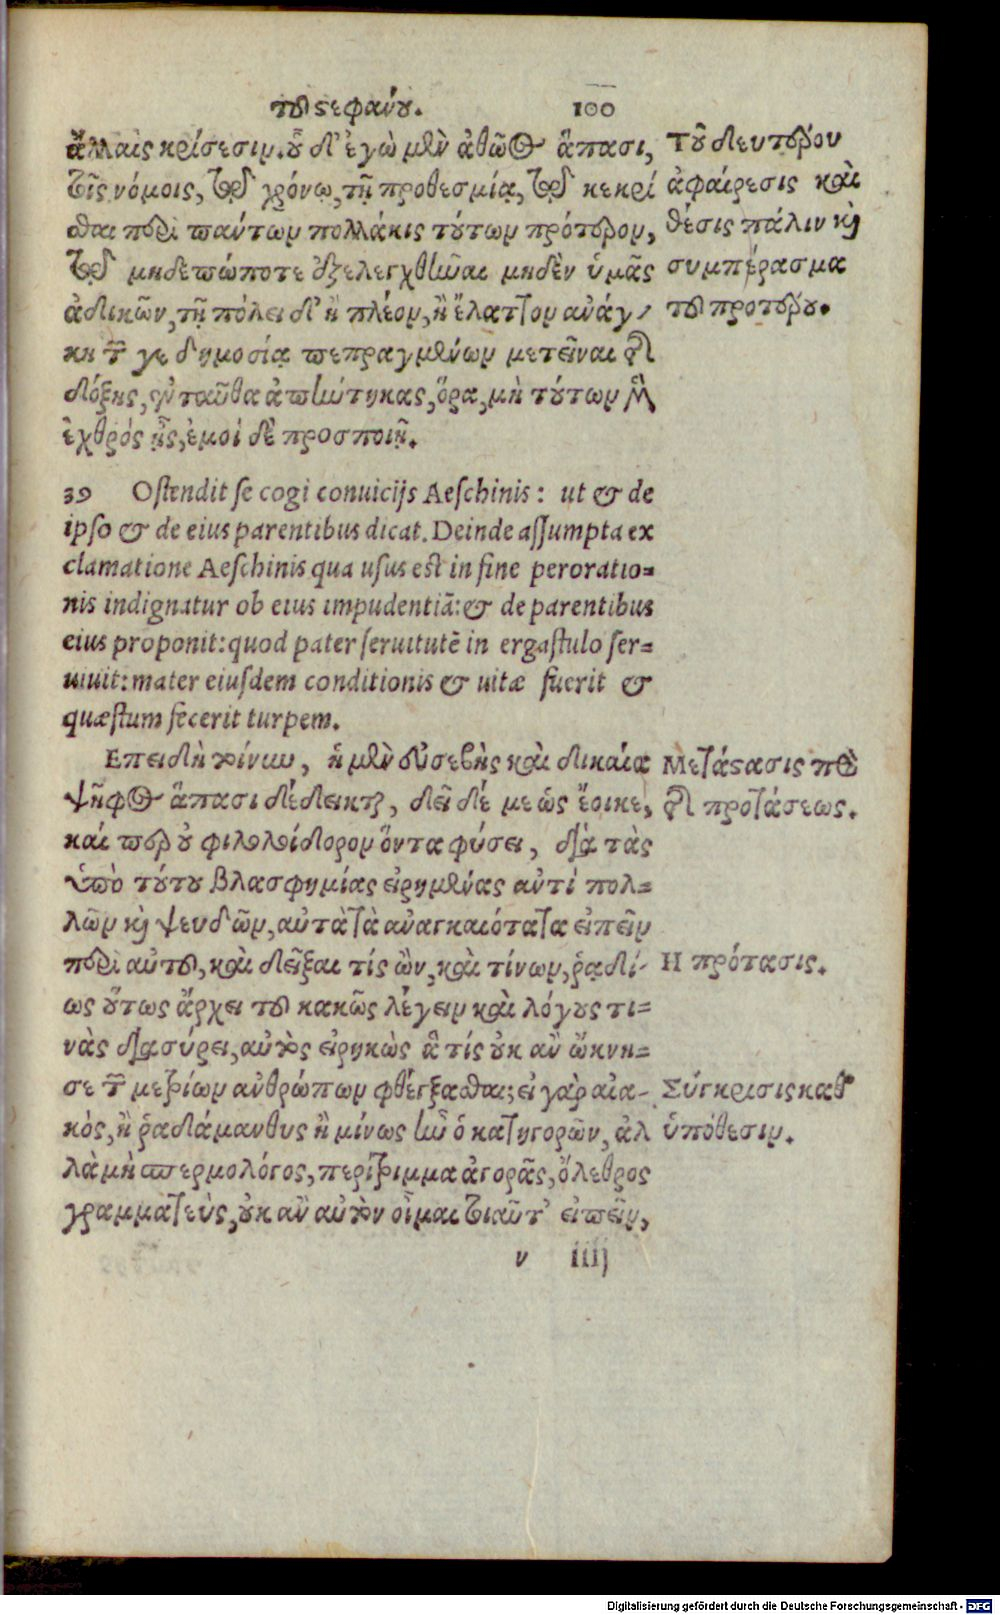 τοῦ στεφάνου. 100
ἄλλαις κρίσεσιν. οὗ δ' ἐγὼ μὲν ἀθῷος ἅπασι,
τοῖς νόμοις, τῷ χρόνῳ, τῇ προθεσμίᾳ, τῷ κεκρί
σθαι περὶ πάντων πολλάκις τούτων πρότερον,
τῷ μηδεπώποτε ἐξελεγχθῆναι μηδὲν ὑμᾶς
ἀδικῶν, τῇ πόλει δ' ἢ πλέον, ἢ ἔλαττον ἀνάγ-
κη τῶν γε δημοσίᾳ πεπραγμένων μετεῖναι τῆς
δόξης, ἐνταῦθα ἀπήντηκας, ὅρα, μὴ τούτων μὲν
ἐχθρός ᾖς, ἐμοὶ δὲ προσποιῇ.
Τοῦ δευτέρου
ἀφαίρεσις καὶ
θέσις πάλιν καὶ
συμπέρασμα
τοῦ προτέρου.
39 Ostendit se cogi conuicijs Aeschinis: ut & de
ipso & de eius parentibus dicat. Deinde assumpta ex
clamatione Aeschinis qua usus est in fine peroratio=
nis indignatur ob eius impudentiã: & de parentibus
eius proponit: quod pater seruitutẽ in ergastulo ser=
uiuit: mater eiusdem conditionis & uitæ fuerit &
quæstum fecerit turpem.
Επειδὴ τοίνυν, ἡ μὲν εὐσεβὴς καὶ δικαία
ψῆφος ἅπασι δέδεικται, δεῖ δέ με ὡς ἔοικε,
καίπερ οὐ φιλολοίδορον ὄντα φύσει, διὰ τὰς
ὑπὸ τούτου βλασφημίας εἰρημένας ἀντὶ πολ=
λῶν καὶ ψευδῶν, αὐτὰ τὰ ἀναγκαιότατα εἰπεῖν
περὶ αὐτοῦ, καὶ δεῖξαι τίς ὢν, καὶ τίνων, ῥαδί-
ως οὕτως ἄρχει τοῦ κακῶς λέγειν καὶ λόγους τι=
νὰς διασύρει, αὐτὸς εἰρηκὼς ἃ τίς οὐκ ἂν ὤκνη=
σε τῶν μετρίων ἀνθρώπων φθέγξασθαι; εἰ γὰρ αἰα-
κός, ἢ ῥαδάμανθυς ἢ μίνως ἦν ὁ κατηγορῶν, ἀλ
λὰ μὴ σπερμολόγος, περίτριμμα ἀγορᾶς, ὄλεθρος
γραμματεὺς, οὐκ ἂν αὐτὸν οἶμαι τοιαῦτ' εἰπεῖν,
Μετάστασις πρὸ
τῆς προτάσεως.
Η πρότασις.
Σύγκρισις καθ'
ὑπόθεσιν.
v iiij
Digitalisierung gefördert durch die Deutsche Forschungsgemeinschaft - DFG